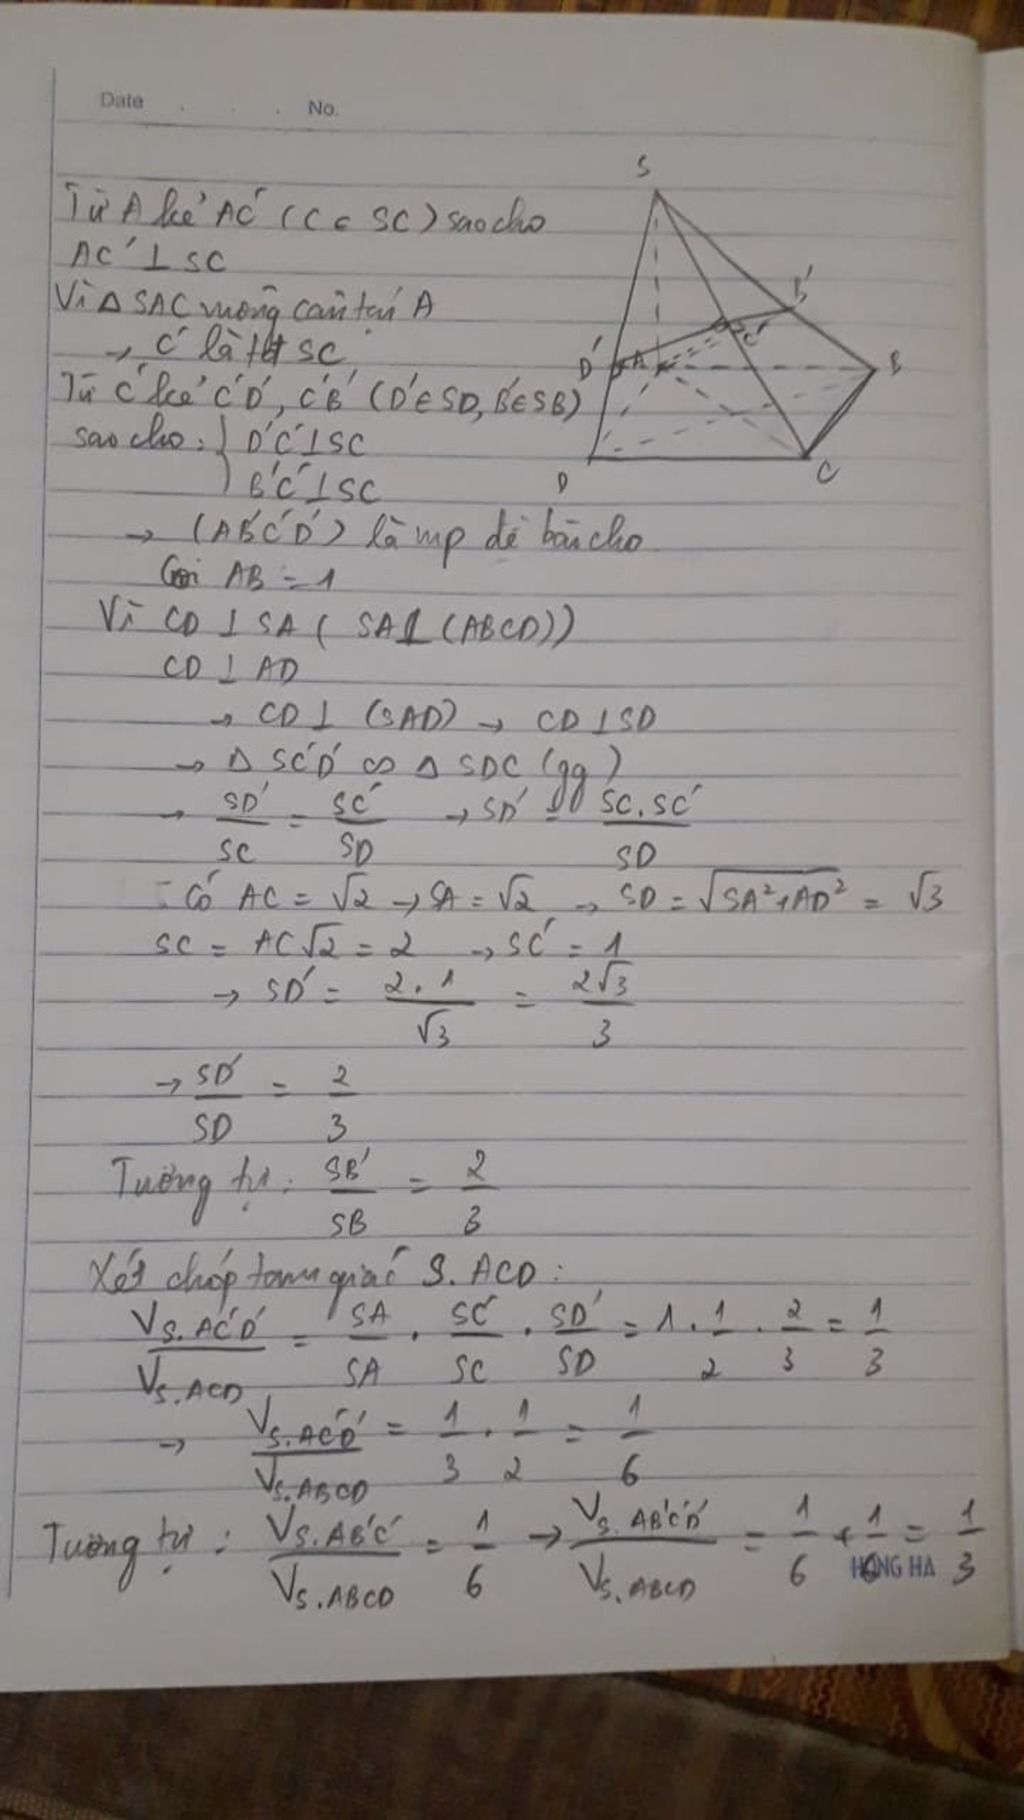 Date . . . No.
S
Từ A kẻ AC' (C' ∈ SC) sao cho
AC' ⊥ SC
Vì Δ SAC vuông cân tại A
→ C' là tđ SC
Từ C' kẻ C'D', C'B' (D' ∈ SD, B' ∈ SB)
sao cho: { D'C' ⊥ SC
B'C' ⊥ SC
B'
C'
D' A B
D C
→ (AB'C'D') là mp đề bài cho
Gọi AB = 1
Vì CD ⊥ SA ( SA ⊥ (ABCD))
CD ⊥ AD
→ CD ⊥ (SAD) → CD ⊥ SD
→ Δ SC'D' ∽ Δ SDC (gg)
→ SD'/SC = SC'/SD → SD' = SC.SC'/SD
- Có AC = √2 → SA = √2 → SD = √(SA²+AD²) = √3
SC = AC√2 = 2 → SC' = 1
→ SD' = 2.1/√3 = 2√3/3
→ SD'/SD = 2/3
Tương tự: SB'/SB = 2/3
Xét chóp tam giác S.ACD:
V_S.AC'D'/V_S.ACD = SA/SA . SC'/SC . SD'/SD = 1 . 1/2 . 2/3 = 1/3
→ V_S.AC'D'/V_S.ABCD = 1/3 . 1/2 = 1/6
Tương tự: V_S.AB'C'/V_S.ABCD = 1/6 → V_S.AB'C'D'/V_S.ABCD = 1/6 + 1/6 = 1/3
HỒNG HÀ